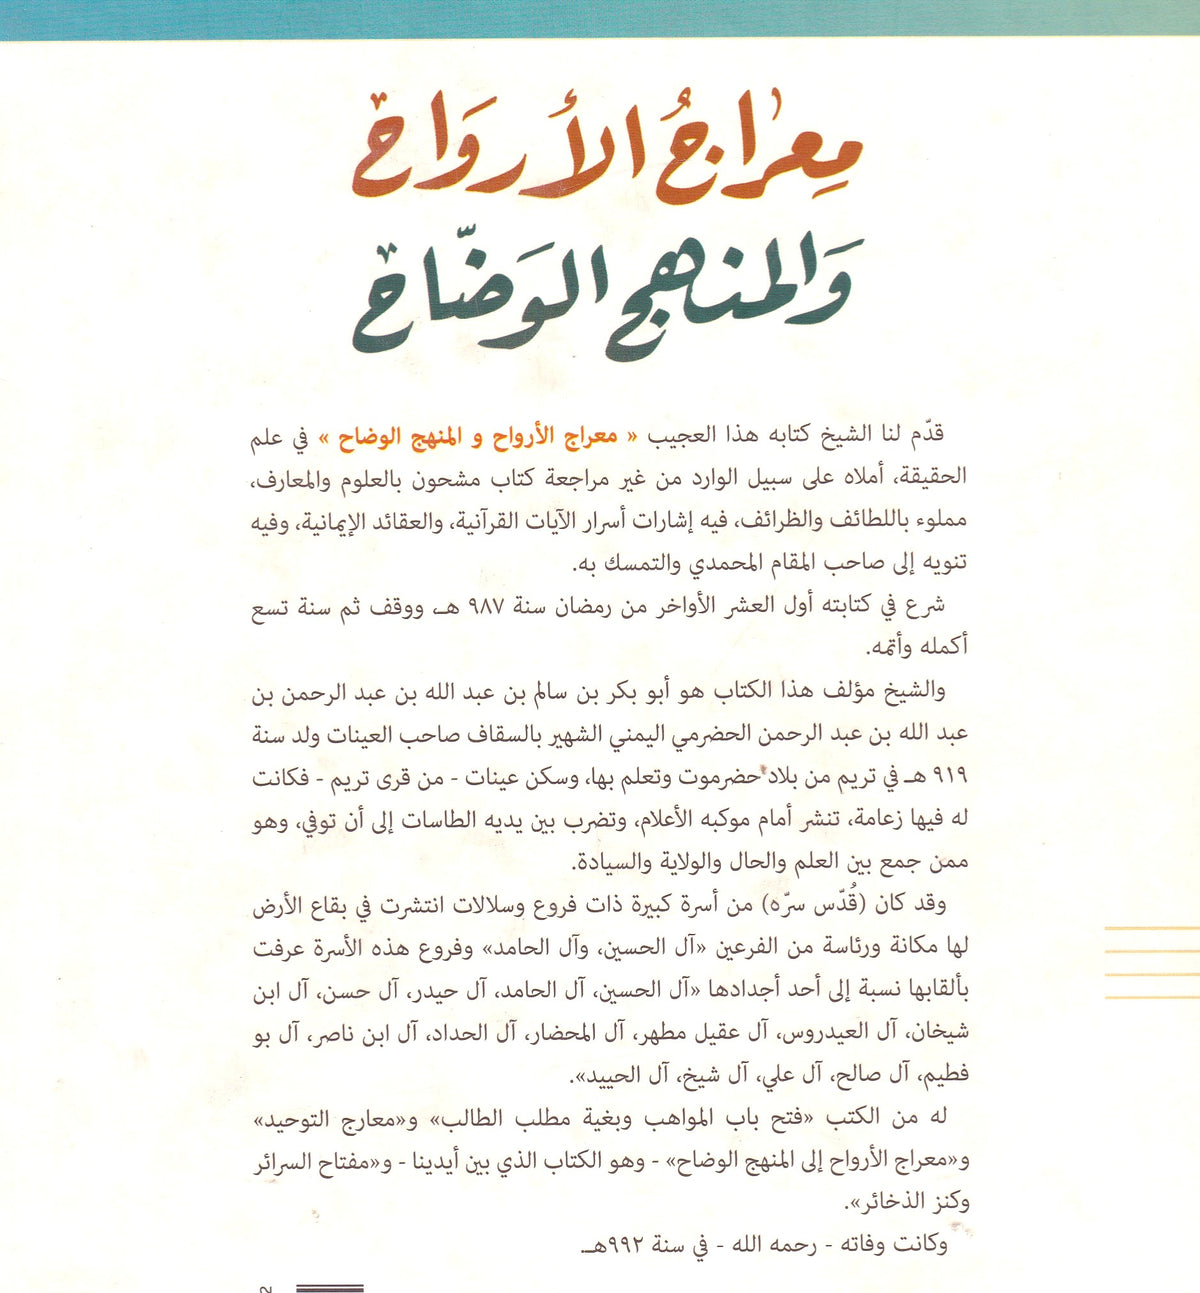 مِعرَاجُ الأَروَاح
وَالمنهج الوَضَّاح
قدّم لنا الشيخ كتابه هذا العجيب « معراج الأرواح و المنهج الوضاح » في علم
الحقيقة، أملاه على سبيل الوارد من غير مراجعة كتاب مشحون بالعلوم والمعارف،
مملوء باللطائف والظرائف، فيه إشارات أسرار الآيات القرآنية، والعقائد الإيمانية، وفيه
تنويه إلى صاحب المقام المحمدي والتمسك به.
شرع في كتابته أول العشر الأواخر من رمضان سنة ٩٨٧ هـ، ووقف ثم سنة تسع
أكمله وأتمه.
والشيخ مؤلف هذا الكتاب هو أبو بكر بن سالم بن عبد الله بن عبد الرحمن بن
عبد الله بن عبد الرحمن الحضرمي اليمني الشهير بالسقاف صاحب العينات ولد سنة
٩١٩ هـ في تريم من بلاد حضرموت وتعلم بها، وسكن عينات - من قرى تريم - فكانت
له فيها زعامة، تنشر أمام موكبه الأعلام، وتضرب بين يديه الطاسات إلى أن توفي، وهو
ممن جمع بين العلم والحال والولاية والسيادة.
وقد كان (قُدّس سرّه) من أسرة كبيرة ذات فروع وسلالات انتشرت في بقاع الأرض
لها مكانة ورئاسة من الفرعين «آل الحسين، وآل الحامد» وفروع هذه الأسرة عرفت
بألقابها نسبة إلى أحد أجدادها «آل الحسين، آل الحامد، آل حيدر، آل حسن، آل ابن
شيخان، آل العيدروس، آل عقيل مطهر، آل المحضار، آل الحداد، آل ابن ناصر، آل بو
فطيم، آل صالح، آل علي، آل شيخ، آل الحييد».
له من الكتب «فتح باب المواهب وبغية مطلب الطالب» و«معارج التوحيد»
و«معراج الأرواح إلى المنهج الوضاح» - وهو الكتاب الذي بين أيدينا - و«مفتاح السرائر
وكنز الذخائر».
وكانت وفاته - رحمه الله - في سنة ٩٩٢هـ.